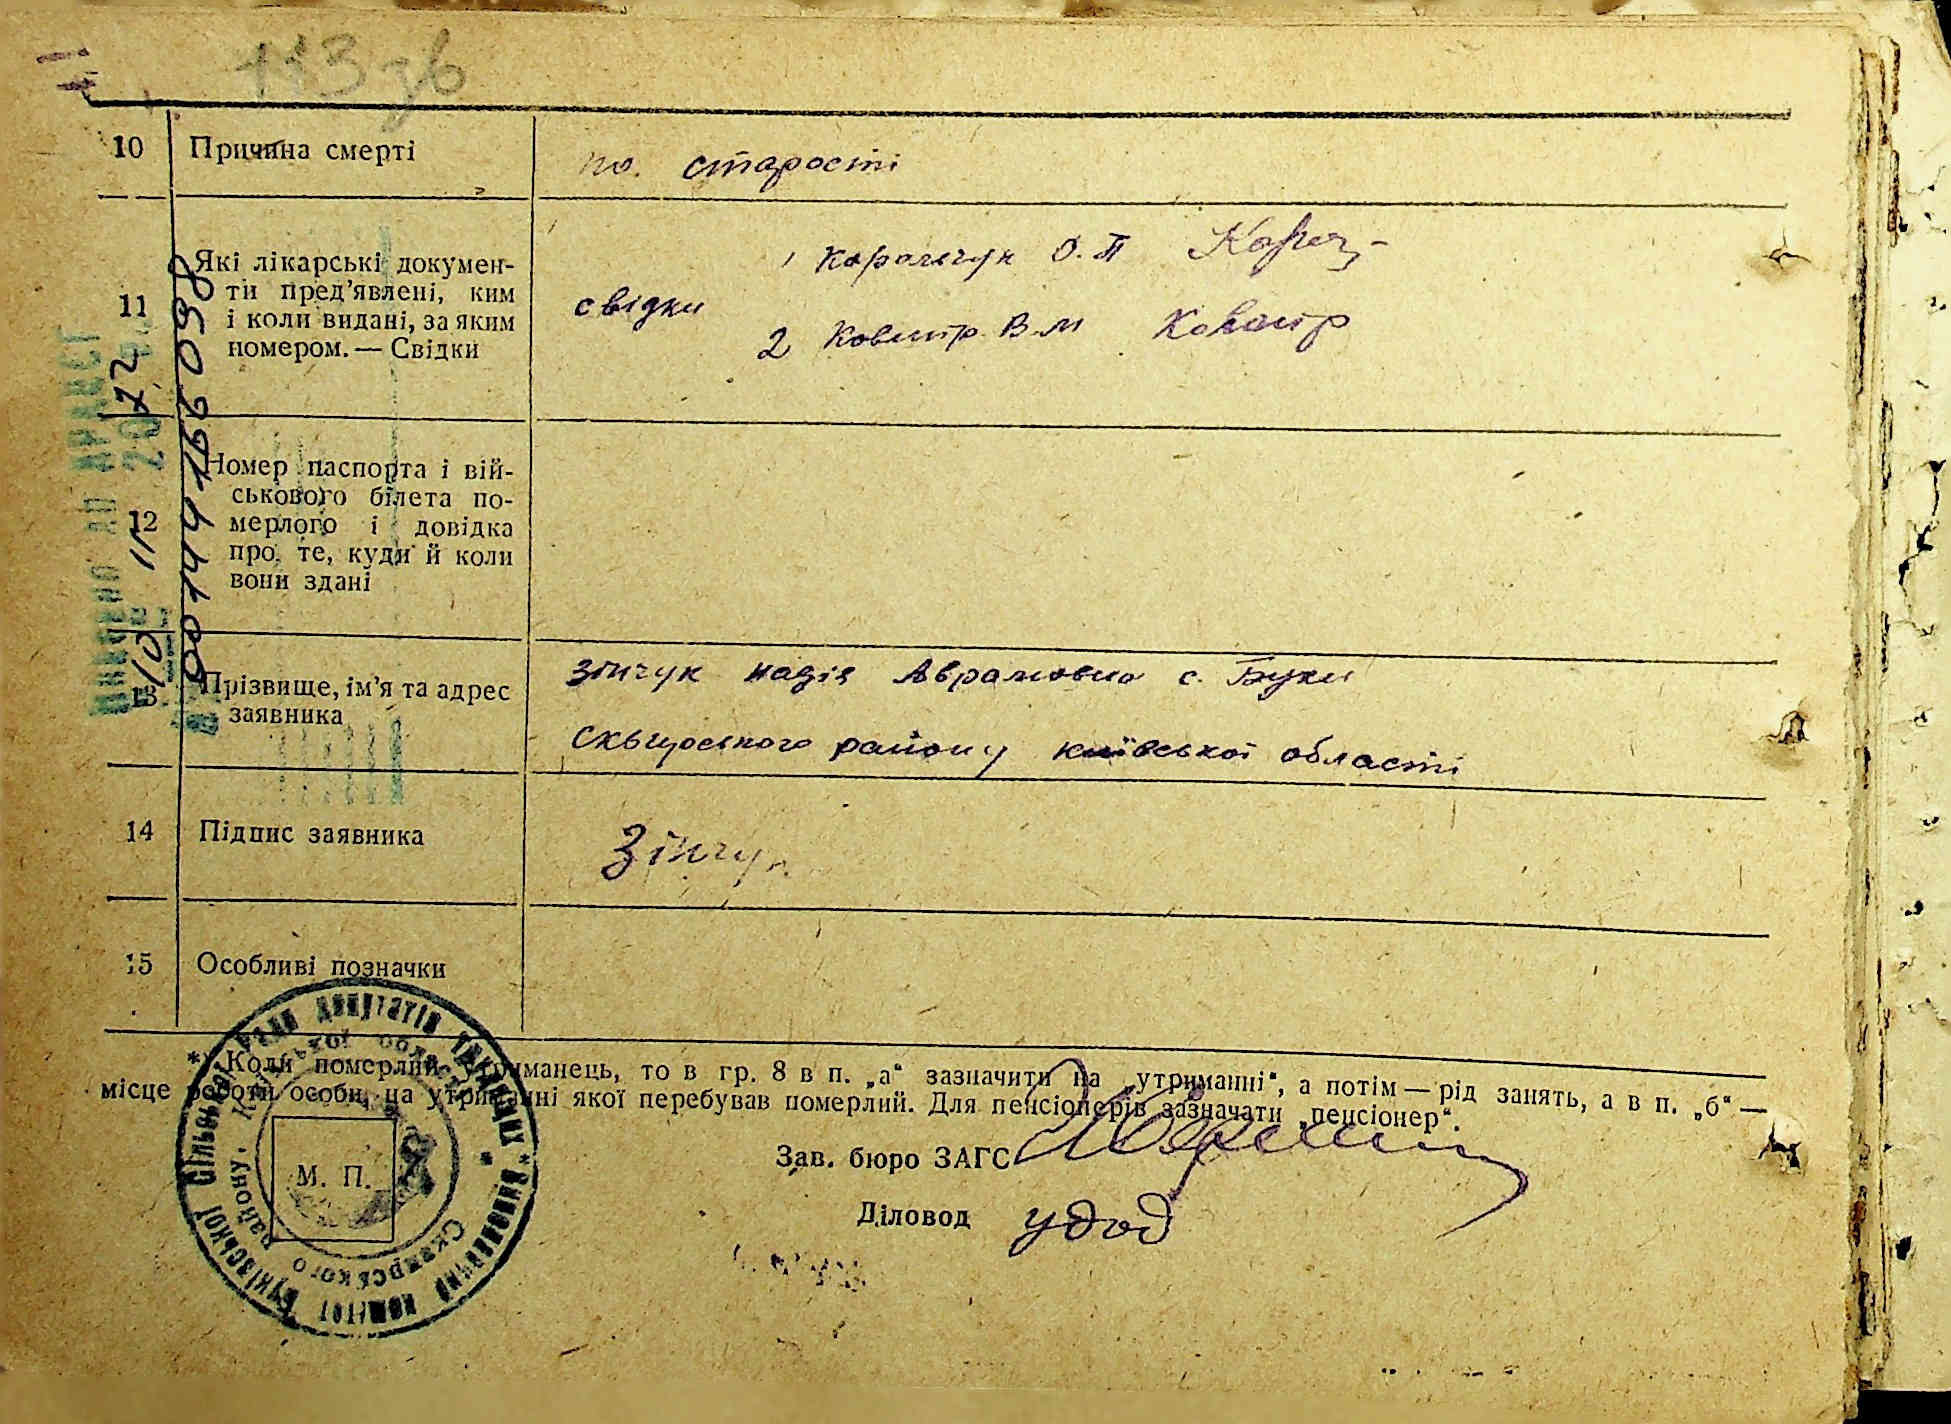 113 зв
10 Причина смерті по старості
11 Які лікарські докумен-
ти пред'явлені, ким
і коли видані, за яким
номером. — Свідки
свідки
1 Корольчук О.П
2 В.М
12 Номер паспорта і вій-
ськового білета по-
мерлого і довідка
про те, куди й коли
вони здані
13 Прізвище, ім'я та адрес
заявника
Зінчук Надія Аврамовна с. Буки
Сквирського району київської області
14 Підпис заявника Зінчук
15 Особливі позначки
*) Коли померлий утриманець, то в гр. 8 в п. „а“ зазначити на „утриманні“, а потім — рід занять, а в п. „б“ —
місце роботи особи, на утриманні якої перебував померлий. Для пенсіонерів зазначати „пенсіонер“.
Зав. бюро ЗАГС
Діловод Удод
М. П.
сільської Ради депутатів трудящих * Виконавчий комітет
Сквирського району, Київської області